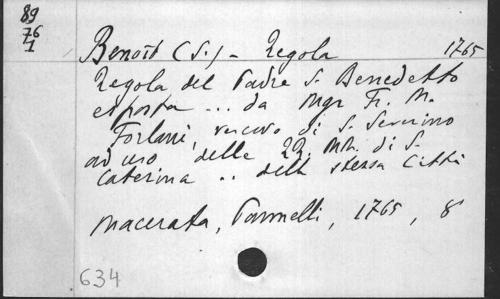 89
76
1
Benoît (S.) - Regola 1765
Regola del Padre S. Benedetto
esposta ... da Mgr Fr. M.
Forlani, vescovo di S. Severino
ad uso delle RR. MM. di S.
Caterina .. della stessa Città
Macerata, Pannelli, 1765, 8°
634